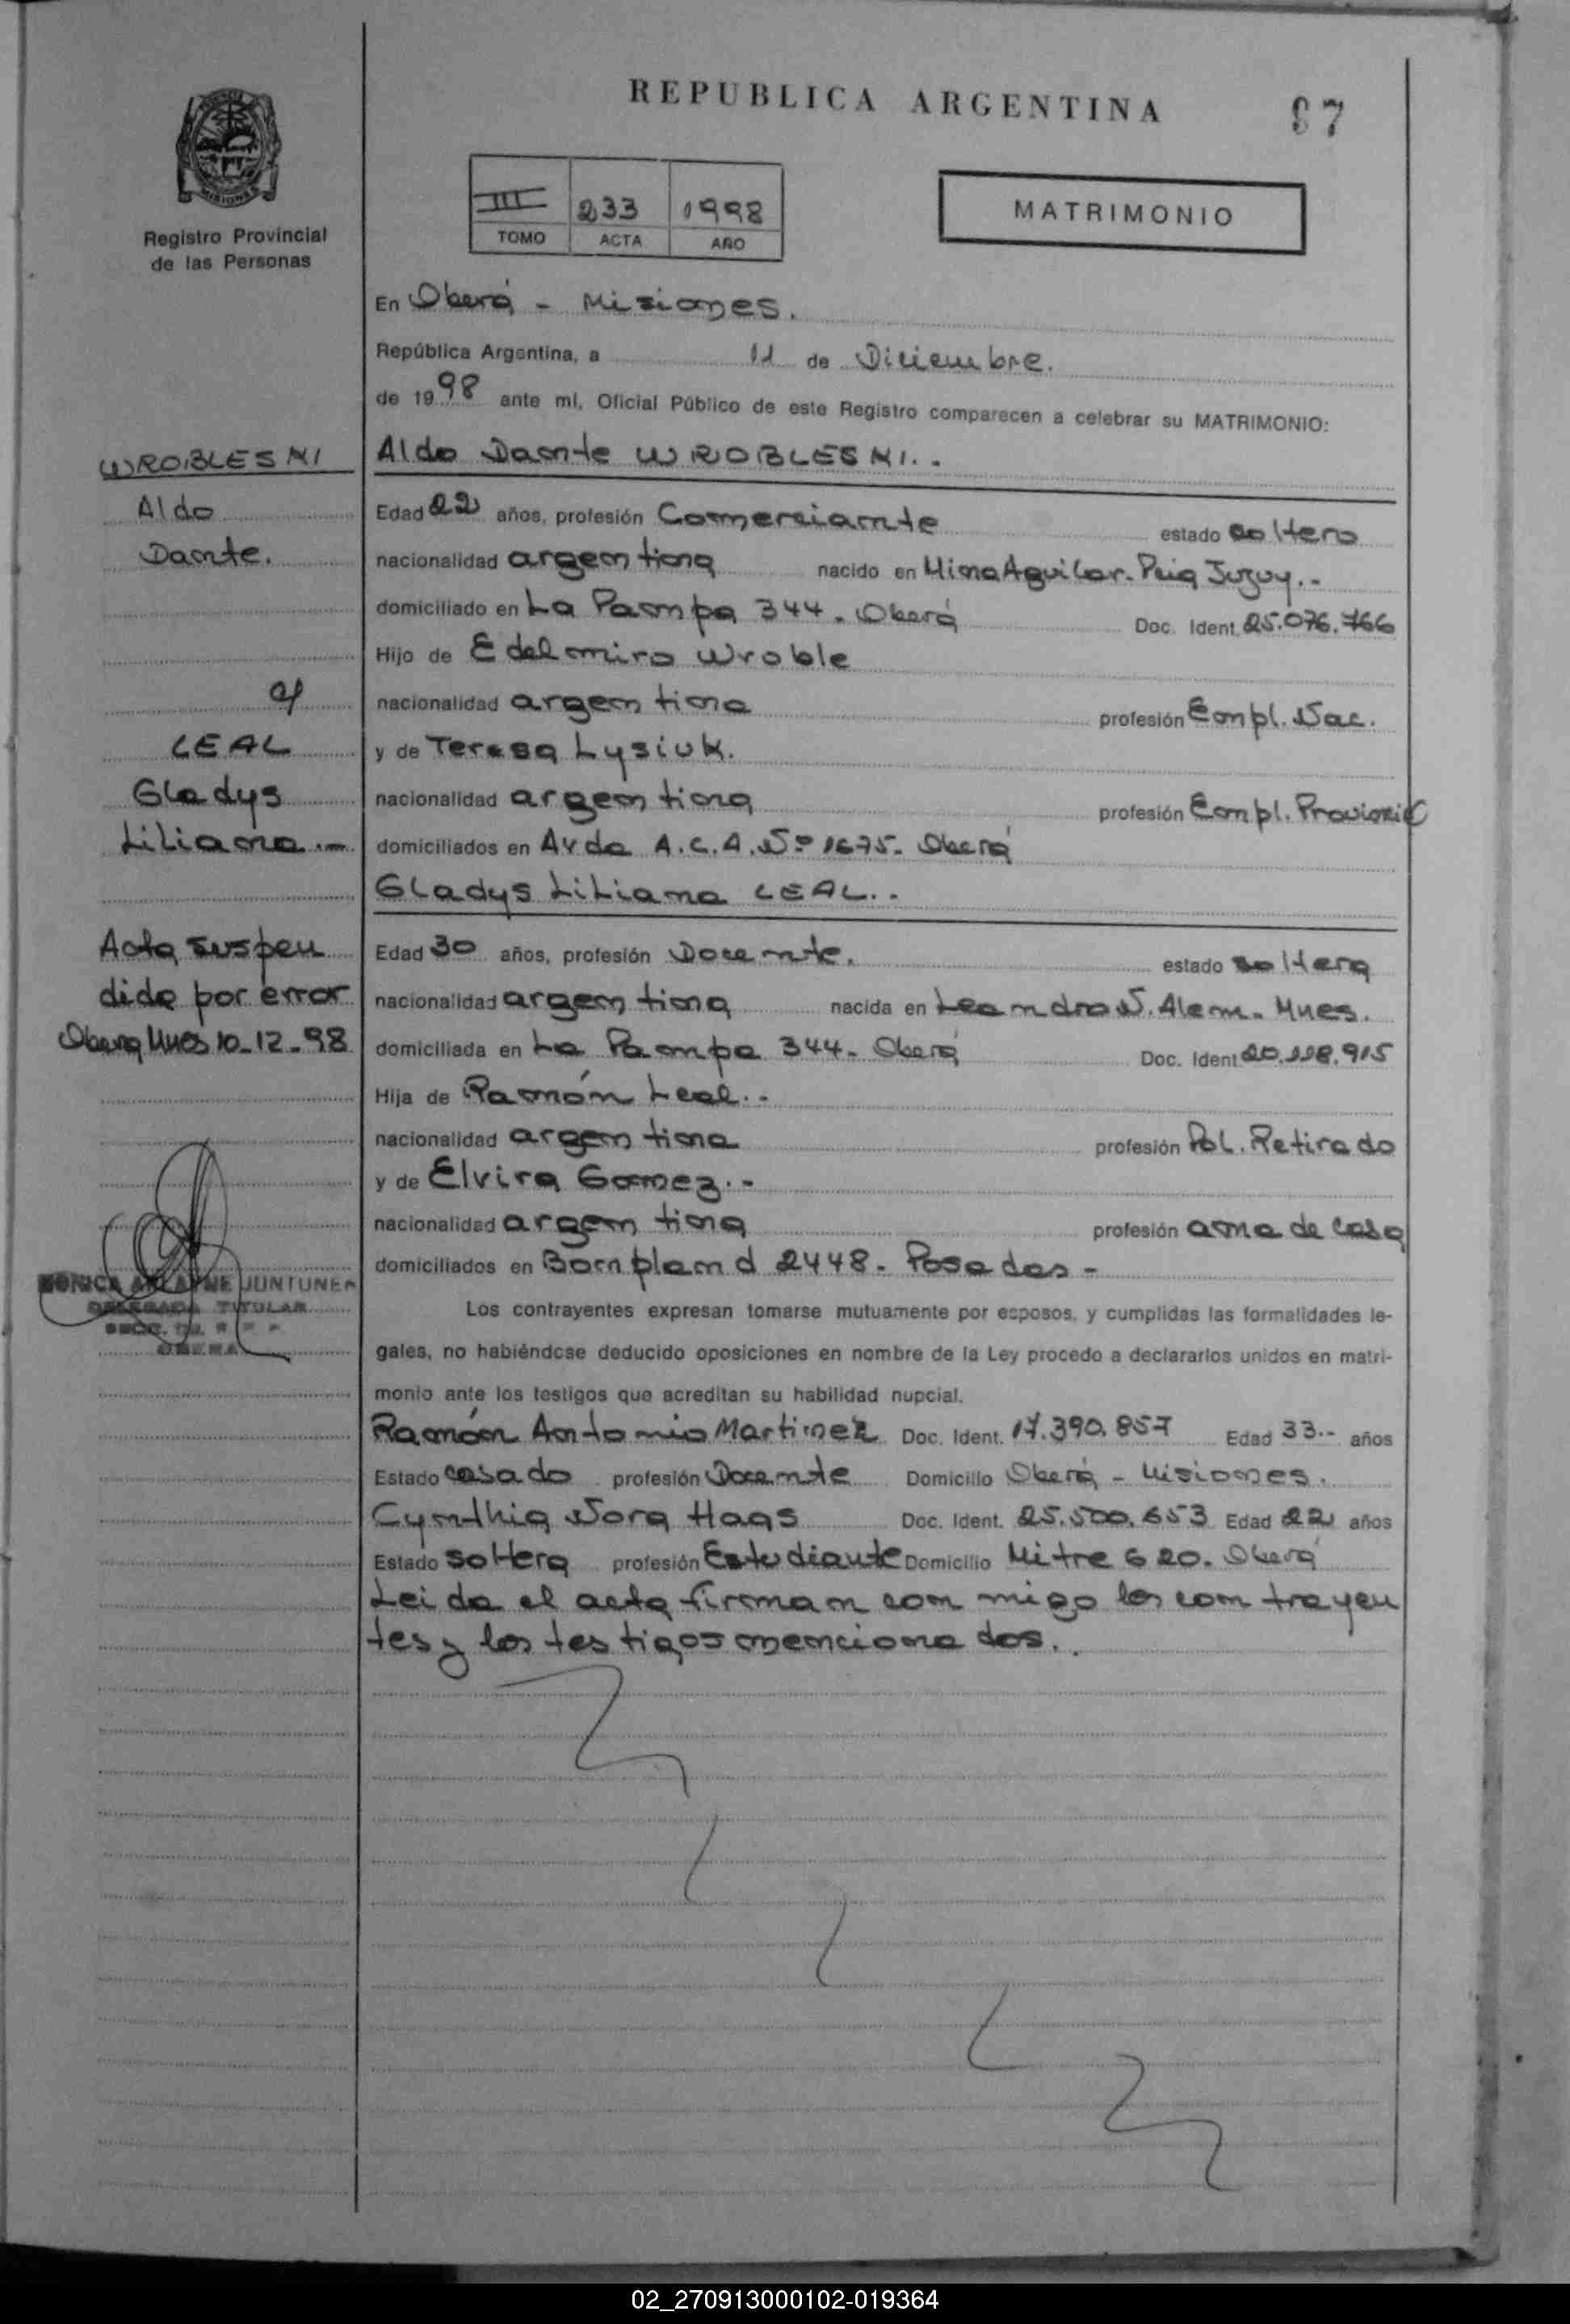 REPUBLICA ARGENTINA
97
Registro Provincial
de las Personas
III 233 1998
TOMO ACTA AÑO
MATRIMONIO
En Oberá - Misiones.
República Argentina, a 11 de Diciembre.
de 1998 ante mí, Oficial Público de este Registro comparecen a celebrar su MATRIMONIO:
WROBLESKI
Aldo
Dante.
c/
LEAL
Gladys
Liliana.-
Acta suspen
dida por error
Obera Mnes 10-12-98
JUNTUNEN
DELEGADA TITULAR
OBERA
Aldo Dante WROBLESKI..
Edad 22 años, profesión Comerciante estado soltero
nacionalidad argentina nacido en Mina Aguilar. Jujuy.-
domiciliado en La Pampa 344. Oberá Doc. Ident. 25.076.766
Hijo de Edelmiro Wroble
nacionalidad argentina profesión Empl. Nac.
y de Teresa Lysiuk.
nacionalidad argentina profesión Empl. Provincial
domiciliados en Avda A.C.A. Nº 1675- Oberá
Gladys Liliana LEAL..
Edad 30 años, profesión Docente. estado soltera
nacionalidad argentina nacida en Leandro N. Alem- Mnes.
domiciliada en La Pampa 344- Oberá Doc. Ident 20.118.915
Hija de Ramón Leal..
nacionalidad argentina profesión Pol. Retirado
y de Elvira Gomez.-
nacionalidad argentina profesión ama de casa
domiciliados en Bompland 2448- Posadas-
Los contrayentes expresan tomarse mutuamente por esposos, y cumplidas las formalidades le-
gales, no habiéndose deducido oposiciones en nombre de la Ley procedo a declararlos unidos en matri-
monio ante los testigos que acreditan su habilidad nupcial.
Ramón Antonio Martinez Doc. Ident. 17.390.857 Edad 33.- años
Estado casado profesión Docente Domicilio Oberá - Misiones.
Cynthia Nora Haas Doc. Ident. 25.500.653 Edad 22 años
Estado soltera profesión Estudiante Domicilio Mitre 620. Oberá
Leida el acta firman con migo los contrayen
tes y los testigos mencionados..
02_270913000102-019364